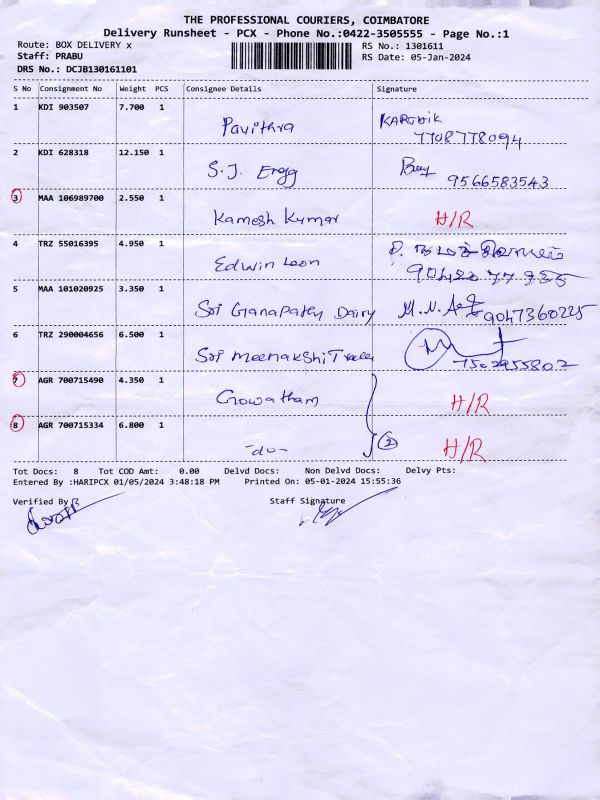 THE PROFESSIONAL COURIERS, COIMBATORE
Delivery Runsheet - PCX - Phone No.:0422-3505555 - Page No.:1
Route: BOX DELIVERY x RS No.: 1301611
Staff: PRABU RS Date: 05-Jan-2024
DRS No.: DCJB130161101
S No Consignment No Weight PCS Consignee Details Signature
1 KDI 903507 7.700 1
Pavithra KARTHIK
7708778094
2 KDI 628318 12.150 1
S.J. 9566583543
3 MAA 106989700 2.550 1
Kamesh Kumar H/R
4 TRZ 55016395 4.950 1
Edwin Leon
5 MAA 101020925 3.350 1
Sri Ganapathy Dairy 9047360225
6 TRZ 290004656 6.500 1
Sri Meenakshi
7502955802
7 AGR 700715490 4.350 1
Gowatham H/R
8 AGR 700715334 6.800 1
-do- (2) H/R
Tot Docs: 8 Tot COD Amt: 0.00 Delvd Docs: Non Delvd Docs: Delvy Pts:
Entered By :HARIPCX 01/05/2024 3:48:18 PM Printed On: 05-01-2024 15:55:36
Verified By Staff Signature